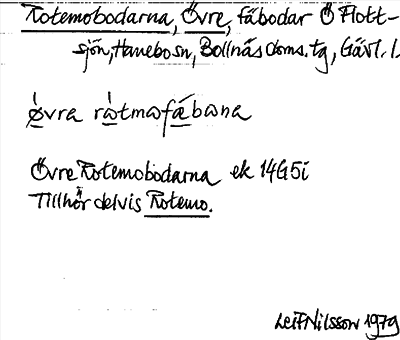 Rotemobodarna, Övre, fäbodar Ö Flott-
sjön, Hanebo sn, Bollnäs doms. tg, Gävl. l.
øvra ràtmɷfä́bɷna
Övre Rotemobodarna ek 14G5i
Tillhör delvis Rotemo.
Leif Nilsson 1979